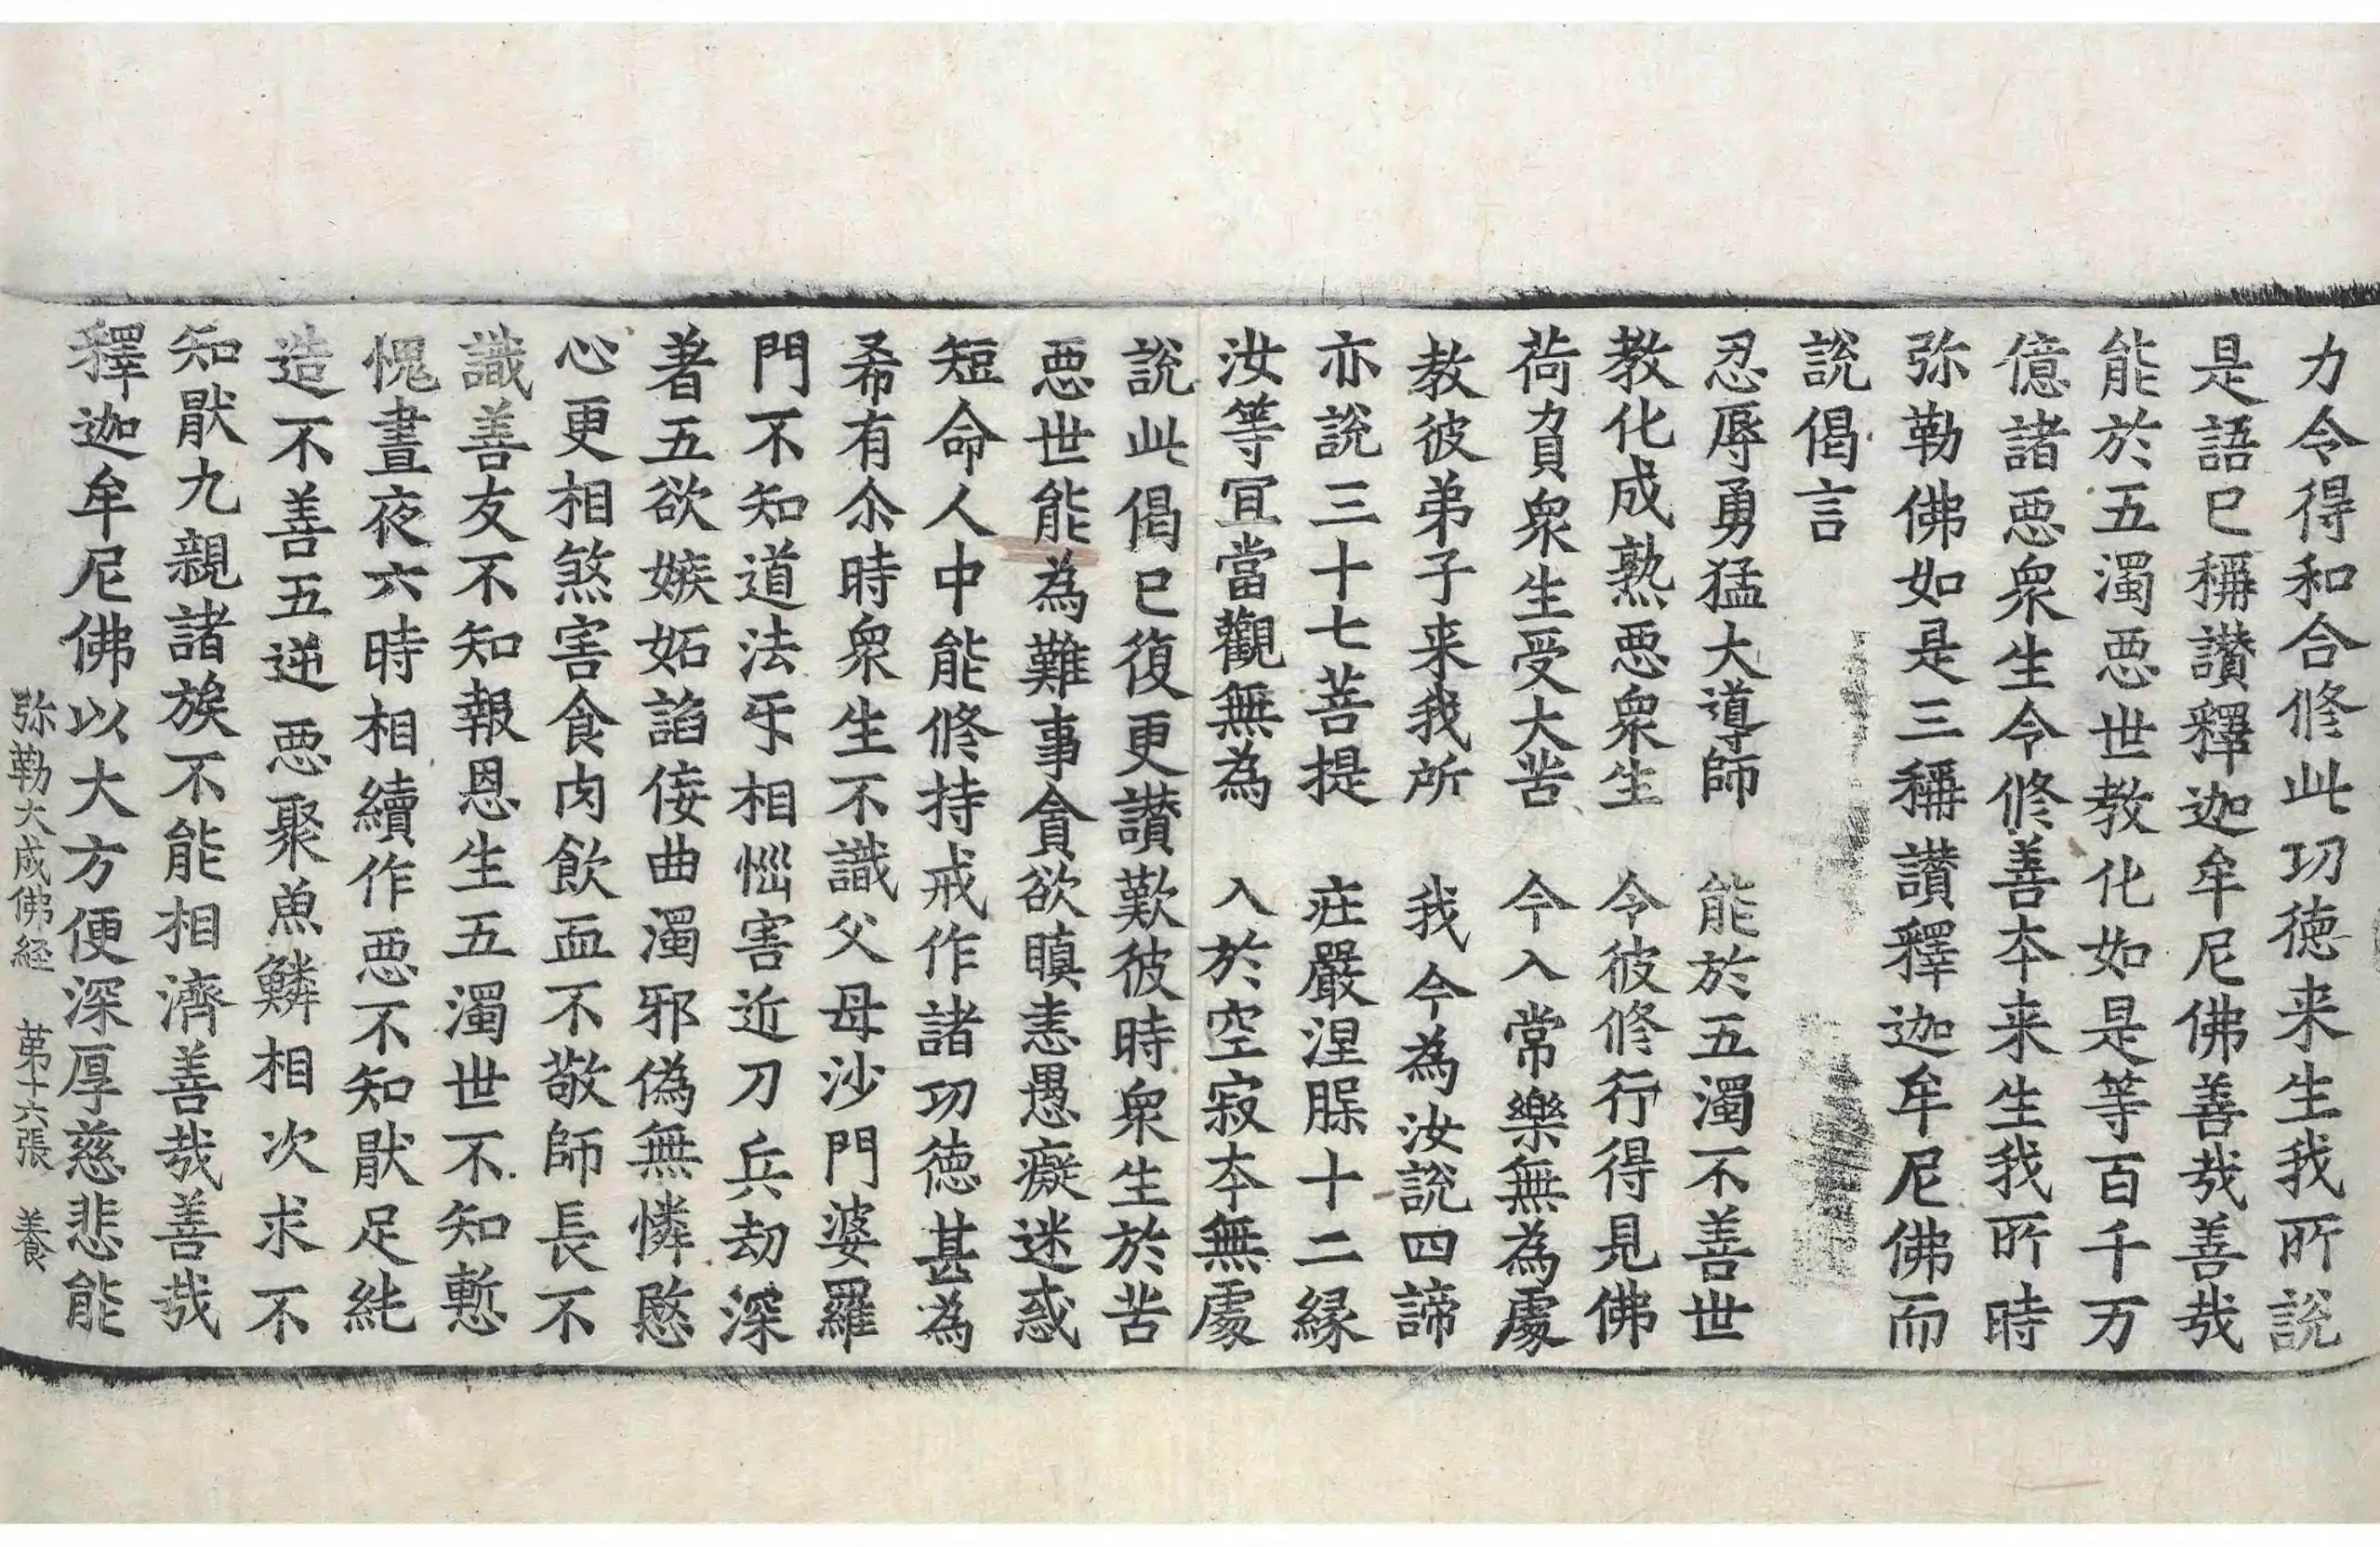 力令得和合修此功徳来生我所說
是語已稱讃釋迦牟尼佛善哉善哉
能於五濁惡世教化如是等百千万
億諸惡衆生令修善本来生我所時
弥勒佛如是三稱讃釋迦牟尼佛而
說偈言
忍辱勇猛大導師　能於五濁不善世
教化成熟惡衆生　令彼修行得見佛
荷負衆生受大苦　令入常樂無為處
教彼弟子来我所　我今為汝說四諦
亦說三十七菩提　莊嚴涅槃十二縁
汝等宜當觀無為　入於空寂本無處
說此偈已復更讃歎彼時衆生於苦
惡世能為難事貪欲瞋恚愚癡迷惑
短命人中能修持戒作諸功徳甚為
希有尒時衆生不識父母沙門婆羅
門不知道法互相惱害近刀兵劫深
著五欲嫉妬諂佞曲濁邪偽無憐愍
心更相煞害食肉飲血不敬師長不
識善友不知報恩生五濁世不知慙
愧晝夜六時相續作惡不知猒足純
造不善五逆惡聚魚鱗相次求不
知猒九親諸族不能相濟善哉善哉
釋迦牟尼佛以大方便深厚慈悲能
弥勒大成佛経　第十六張　養